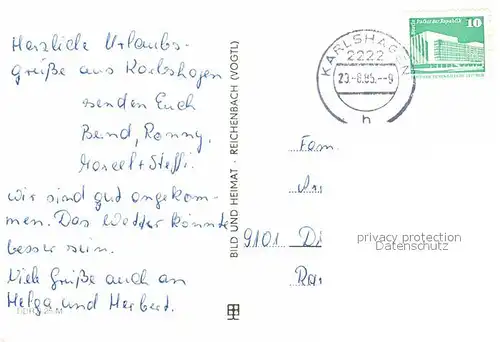 Herzliche Urlaubs-
grüße aus Karlshagen
senden Euch
Bernd, Ronny,
Marcel + Steffi.
Wir sind gut angekom-
men. Das Wetter könnte
besser sein.
Viele Grüße auch an
Helga und Herbert.
BILD UND HEIMAT · REICHENBACH (VOGTL)
KARLSHAGEN
2222
23.-8.85.--9
h
Berlin, Palast der Republik
10
Fam.
9101 D
privacy protection
Datenschutz